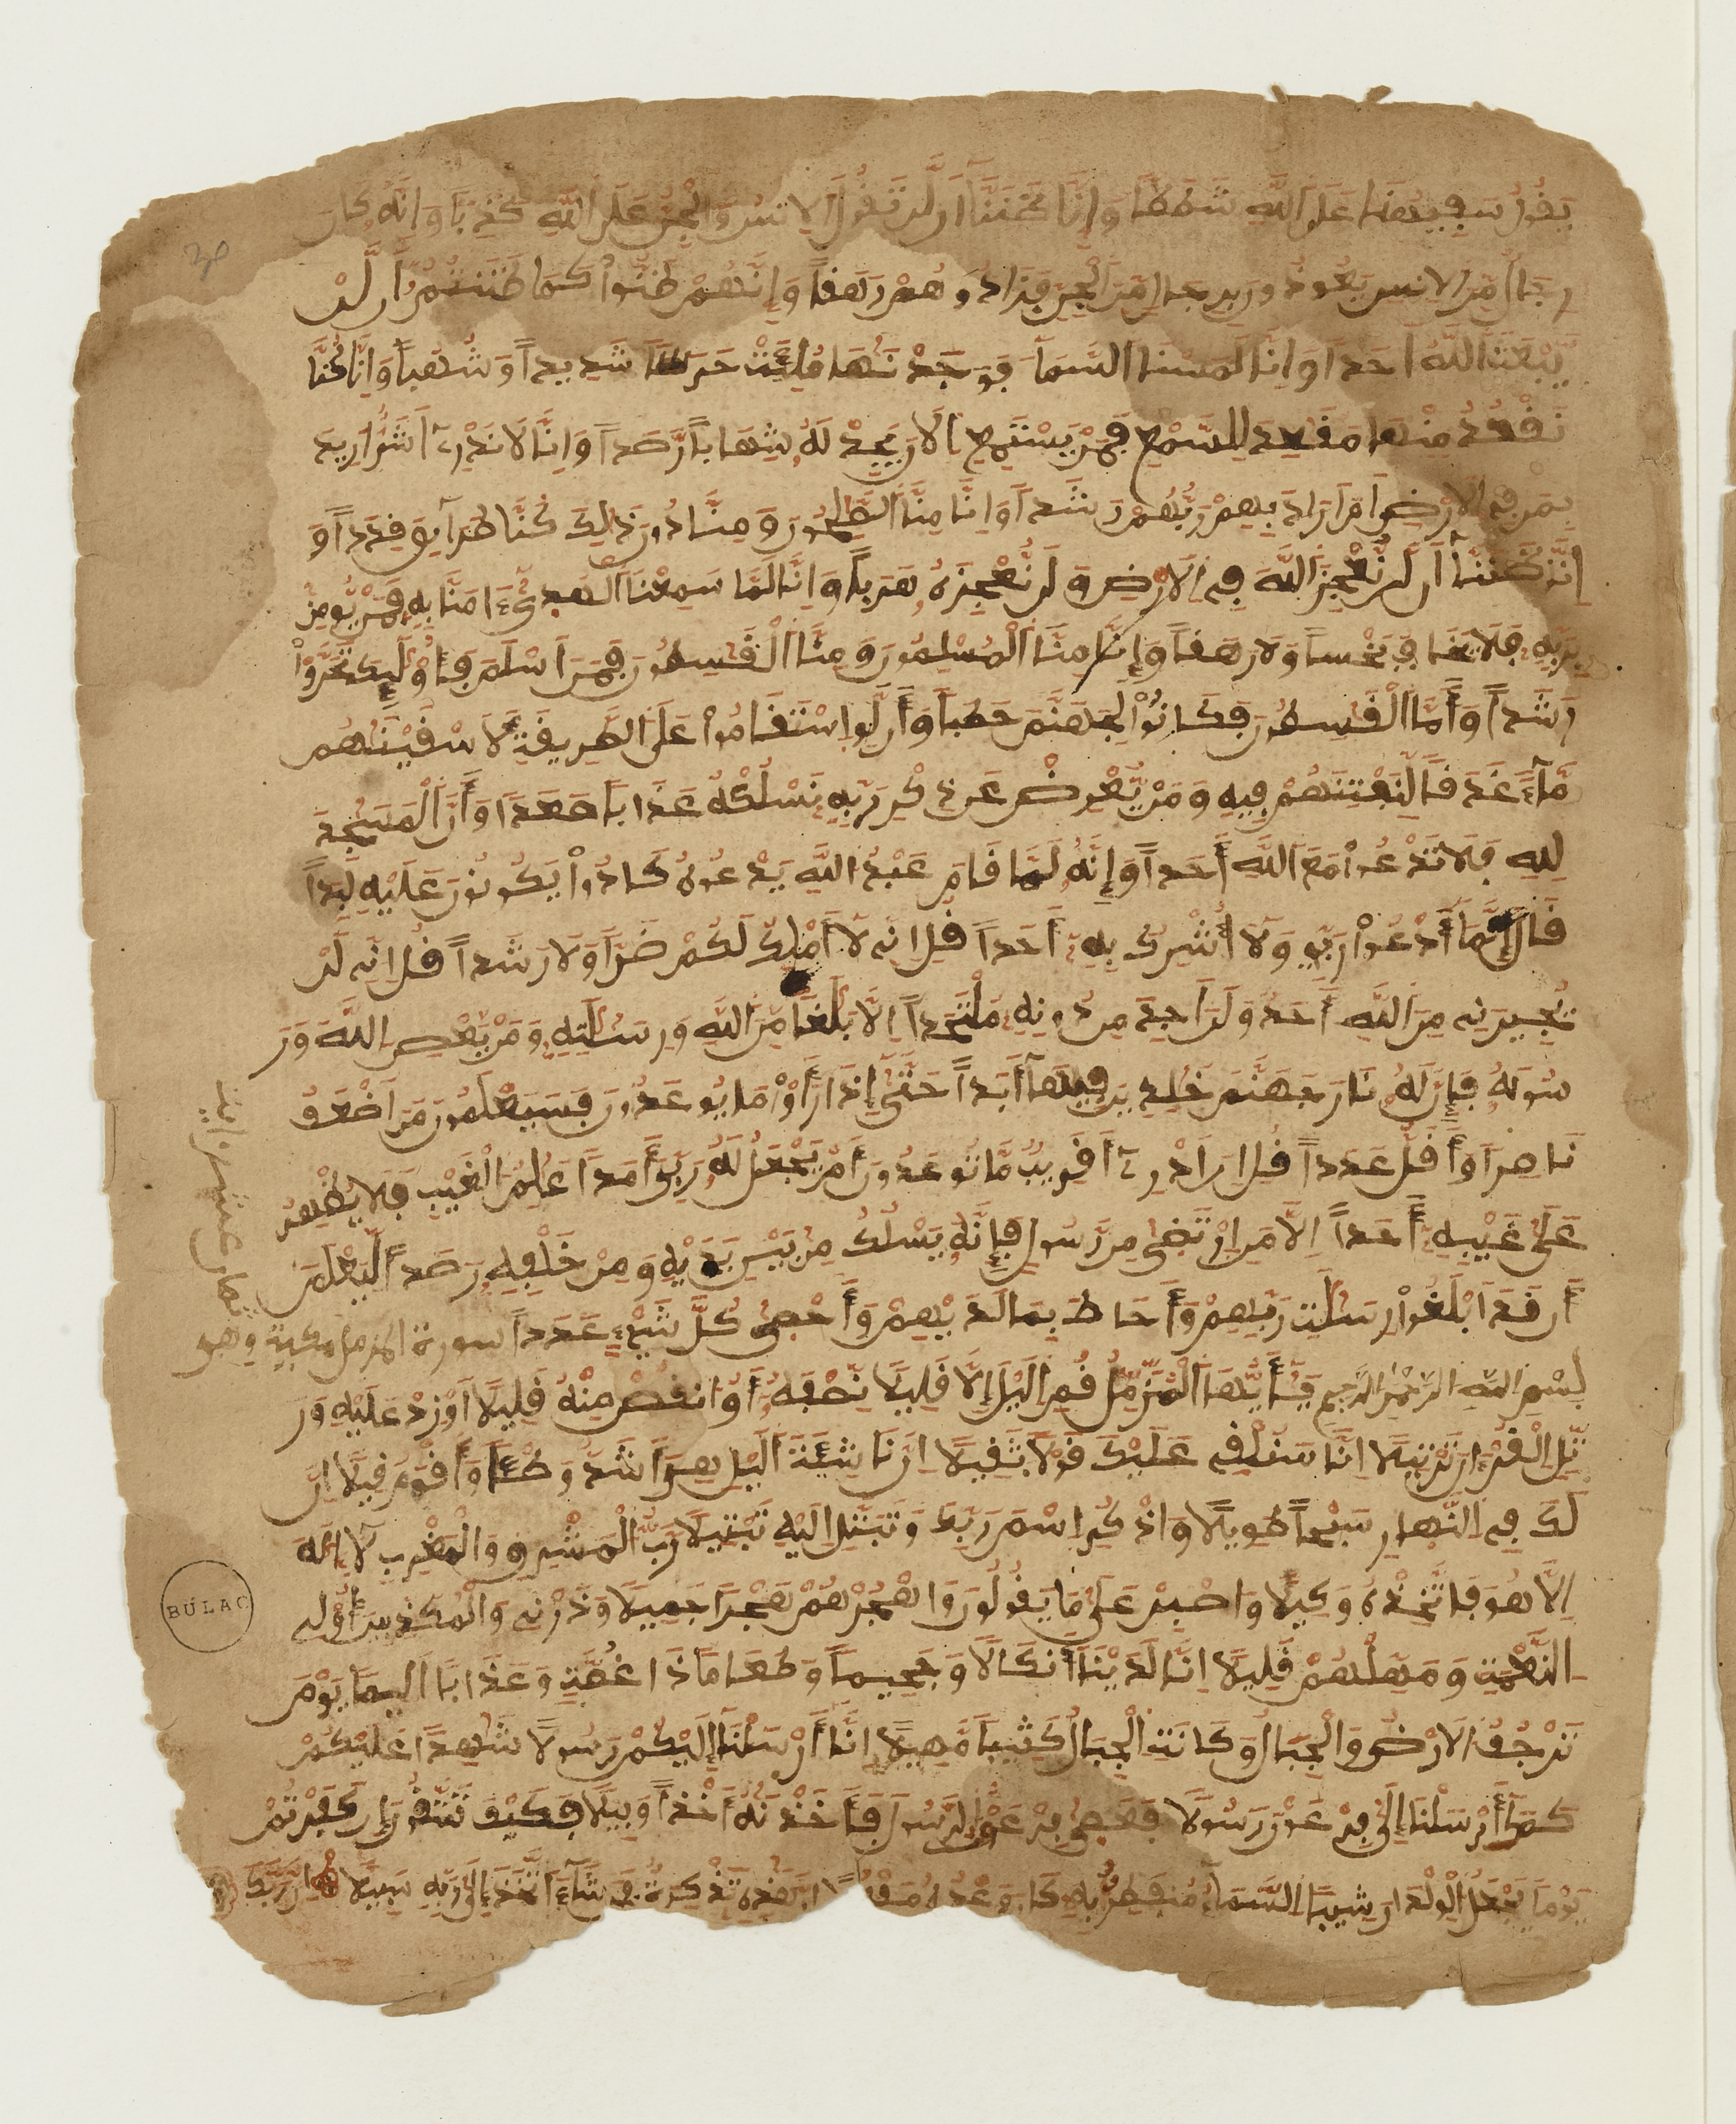 يقول سفيهنا على الله شططا وإنا ظننا أن لن تقول الإنس والجن على الله كذبا وأنه كان
رجال من الإنس يعوذون برجال من الجن فزادوهم رهقا وإنهم ظنوا كما ظننتم أن لن
يبعث الله أحدا وإنا لمسنا السماء فوجدنها ملئت حرسا شديدا وشهبا وإنا كنا
نقعد منها مقعد للسمع فمن يستمع الان يجد له شهابا رصدا وإنا لا ندري أشر أريد
بمن في الأرض أم أراد بهم ربهم رشدا وإنا منا الصلحون ومنا دون ذلك كنا طرآيق قددا و
إنا ظننا أن لن نعجز الله في الأرض ولن نعجزه هربا وإنا لما سمعنا الهدى ءامنا به فمن يومن
بربه فلا يخاف بخسا ولا رهقا وإنا منا المسلمون ومنا القسطون فمن أسلم فأولئك تحروا
رشدا وأما القسطون فكانوا لجهنم حطبا وأن لو استقاموا على الطريقة لأسقينهم
ماء غدقا لنفتنهم فيه ومن يعرض عن ذكر ربه نسلكه عذابا صعدا وأن المسجد
لله فلا تدعوا مع الله أحدا وإنه لما قام عبد الله يدعوه كادوا يكونون عليه لبدا
قال إنما أدعوا ربي ولا أشرك به أحدا قل إني لا أملك لكم ضرا ولا رشدا قل إني لن
يجيرني من الله أحد ولن أجد من دونه ملتحدا إلا بلغا من الله ورسلته ومن يعص الله ور
سوله فإن له نار جهنم خلدين فيها أبدا حتى إذا رأوا ما يوعدون فسيعلمون من أضعف
ناصرا وأقل عددا قل إن أدري أقريب ما توعدون أم يجعل له ربي أمدا علم الغيب فلا يظهر
على غيبه أحدا إلا من ارتضى من رسول فإنه يسلك من بين يديه ومن خلفه رصدا ليعلم
أن قد أبلغوا رسلت ربهم وأحاط بما لديهم وأحصى كل شيء عددا سورة المزمل مكية وهي
ثمان عشر اية
بسم الله الرحمن الرحيم يأيها المزمل قم اليل إلا قليلا نصفه أو انقص منه قليلا أو زد عليه ور
تل القرءان ترتيلا إنا سنلقي عليك قولا ثقيلا إن ناشئة اليل هي أشد وطئا وأقوم قيلا إن
لك في النهار سبحا طويلا واذكر اسم ربك وتبتل إليه تبتيلا رب المشرق والمغرب لا إله
إلا هو فاتخذه وكيلا واصبر على ما يقولون واهجرهم هجرا جميلا وذرني والمكذبين أولي
النعمة ومهلهم قليلا إن لدينا أنكالا وجحيما وطعاما ذا غصة وعذابا أليما يوم
ترجف الأرض والجبال وكانت الجبال كثيبا مهيلا إنا أرسلنا إليكم رسولا شهدا عليكم
كما أرسلنا إلى فرعون رسولا فعصى فرعون الرسول فأخذنه أخذا وبيلا فكيف تتقون إن كفرتم
يوما يجعل الولدان شيبا السماء منفطر به كان وعده مفعولا إن هذه تذكرة فمن شاء اتخذ إلى ربه سبيلا إن ربك
BÚLAC